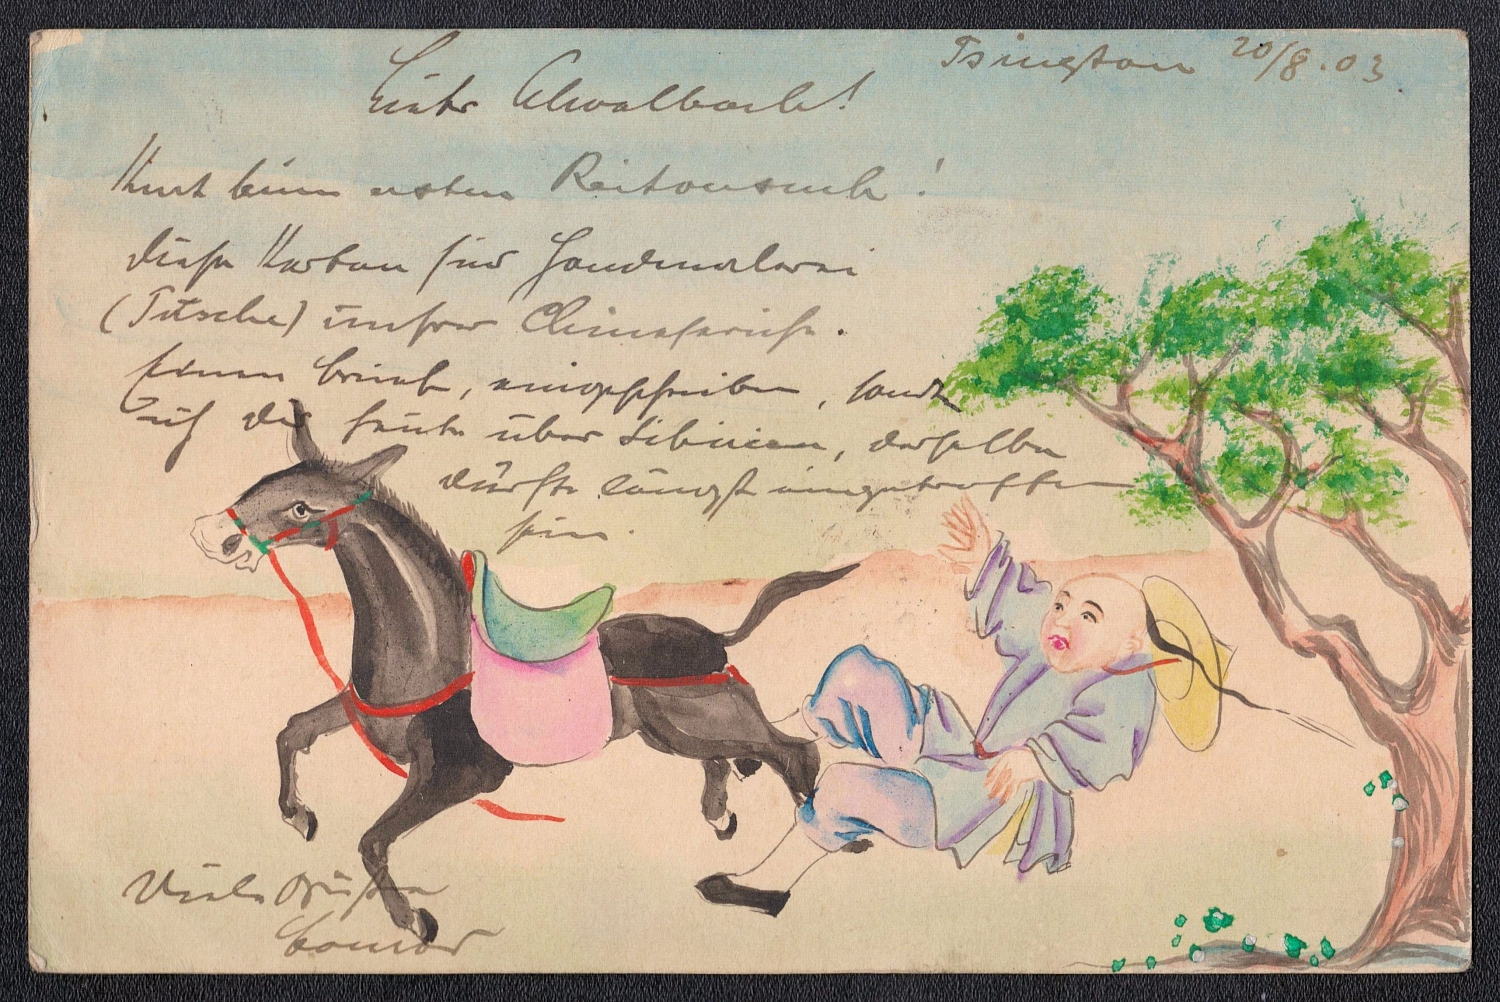 Tsingtau 20/8.03
Liebe Schwalbach!
Kurt beim ersten Reitversuch!
Diese Karten sind Handmalerei
(Tusche) unserer Chinesen.
Einen Brief, eingeschrieben, sandte
ich der heute über Sibirien, derselbe
dürfte längst eingetroffen
sein.
Viele Grüße